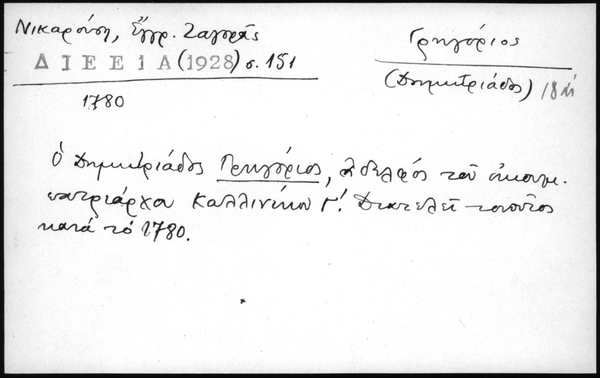 Νικαρούση, Ἔγγρ. Ζαγορᾶς
ΔΙΕΕΙΑ (1928) σ. 151
1780
Γρηγόριος
(Δημητριάδος) 18ος
Ὁ Δημητριάδος Γρηγόριος, ἀδελφός τοῦ οἰκουμ.
πατριάρχου Καλλινίκου Γ΄. Διατελεῖ τοιοῦτος
κατά τό 1780.